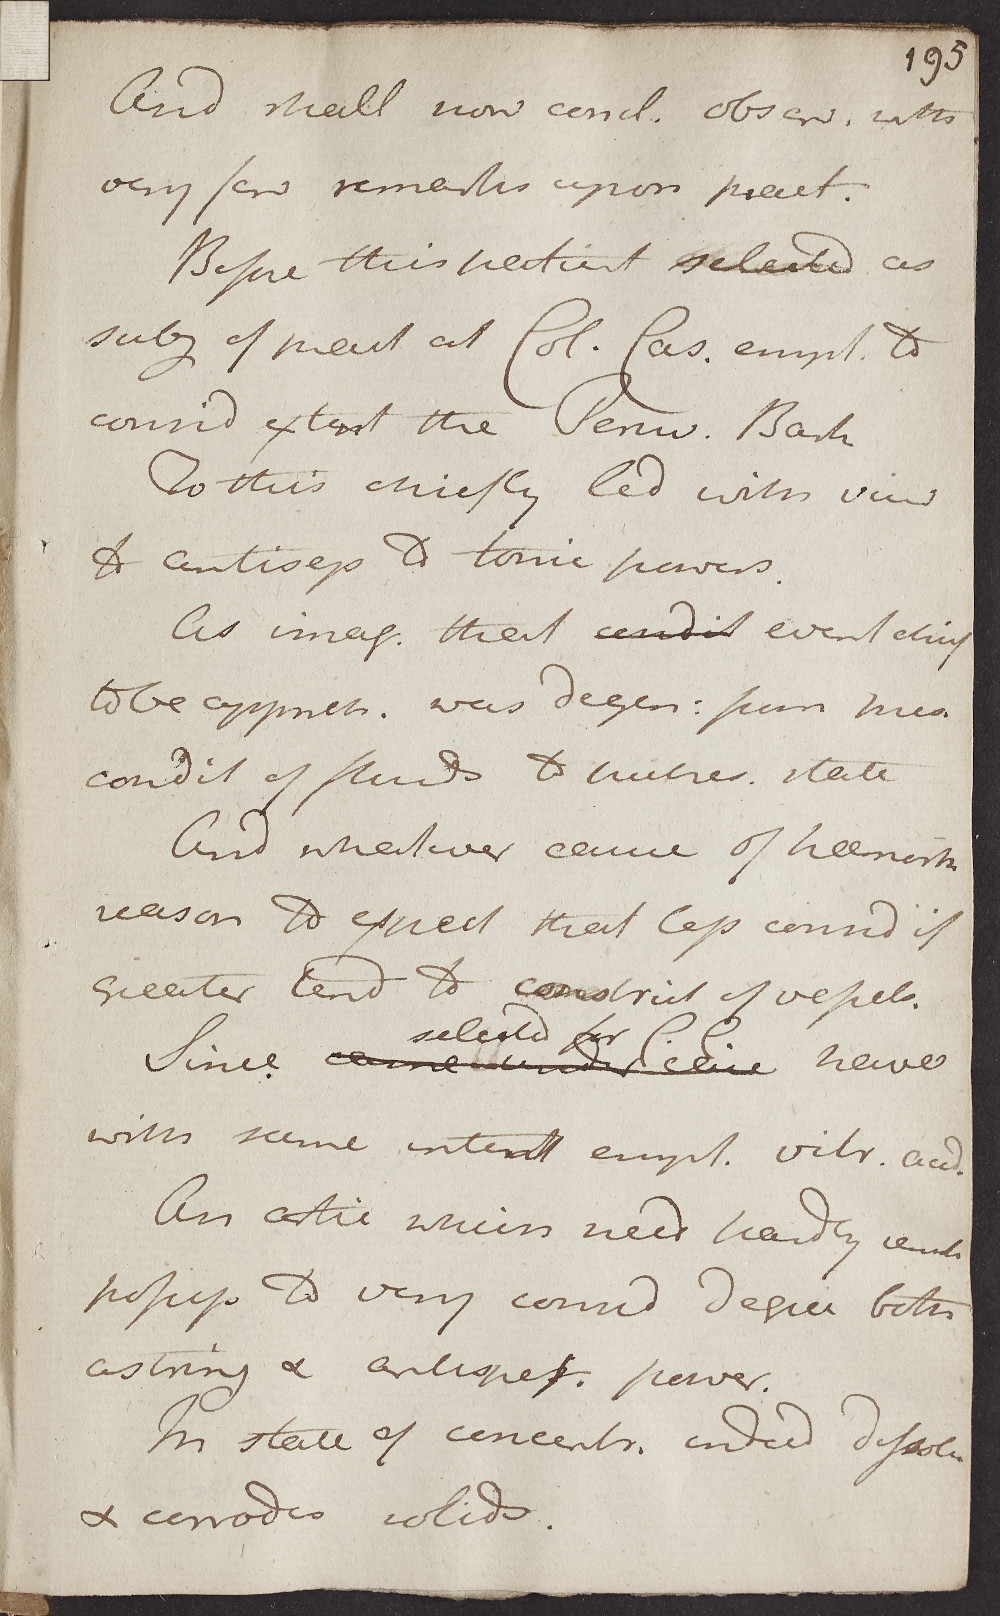 195
And shall now concl. observ. with
very few remarks upon pract.
Before this patient selected as
subj of pract at Col. Cas. empl. to
consid extent the Peruv. Bark
To this chiefly led with view
to antisep & tonic powers.
As imag. that condit event chief
to be appreh. was degen: from
condit of fluids to putres. state
And whatever cause of hæmorrh
reason to expect that less consid if
greater tend to constrict of vessels.
selected for
Since came under Clinic have
with same intent empl. vitr. acid.
An artic which need hardly remk
possess to very consid degree both
astring & antisept. power.
In state of concentr. indeed dissolv
& corrodes solids.